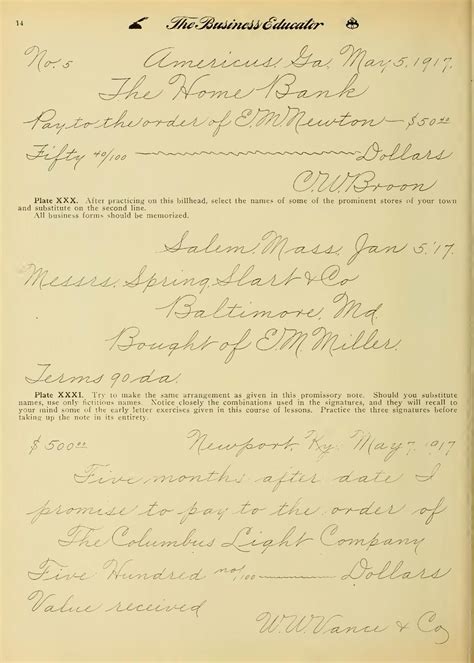 14
The Business Educator
No. 5 Americus, Ga. May 5, 1917.
The Home Bank
Pay to the order of E. M. Newton — $50.40
Fifty 40/100 Dollars
C. W. Broon
Plate XXX. After practicing on this billhead, select the names of some of the prominent stores of your town
and substitute on the second line.
All business forms should be memorized.
Salem, Mass. Jan 5, '17.
Messrs. Spring, Slart & Co
Baltimore, Md.
Bought of E. M. Miller.
Terms 90 da.
Plate XXXI. Try to make the same arrangement as given in this promissory note. Should you substitute
names, use only fictitious names. Notice closely the combinations used in the signatures, and they will recall to
your mind some of the early letter exercises given in this course of lessons. Practice the three signatures before
taking up the note in its entirety.
$500.00 Newport, Ky. May 7, 1917
Five months after date I
promise to pay to the order of
The Columbus Light Company
Five Hundred no/100 Dollars
Value received
W. W. Vance & Co